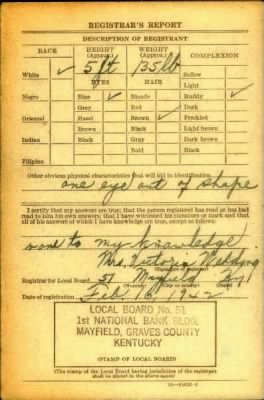 REGISTRAR'S REPORT
DESCRIPTION OF REGISTRANT
RACE HEIGHT (Approx.) WEIGHT (Approx.) COMPLEXION
White ✓ 5 ft 135 lb Sallow
EYES HAIR Light
Negro Blue ✓ Blonde Ruddy ✓
Gray Red Dark
Oriental Hazel Brown ✓ Freckled
Brown Black Light brown
Indian Black Gray Dark brown
Bald Black
Filipino
Other obvious physical characteristics that will aid in identification
one eye out of shape
I certify that my answers are true; that the person registered has read or has had
read to him his own answers; that I have witnessed his signature or mark and that
all of his answers of which I have knowledge are true, except as follows:
none to my knowledge
Mrs. Victoria
Registrar for Local Board 51 Mayfield Ky
Date of registration Feb. 16, 1942
LOCAL BOARD No. 51
1st NATIONAL BANK BLDG.
MAYFIELD, GRAVES COUNTY
KENTUCKY
(STAMP OF LOCAL BOARD)
(The stamp of the Local Board having jurisdiction of the registrant
shall be placed in the above space)